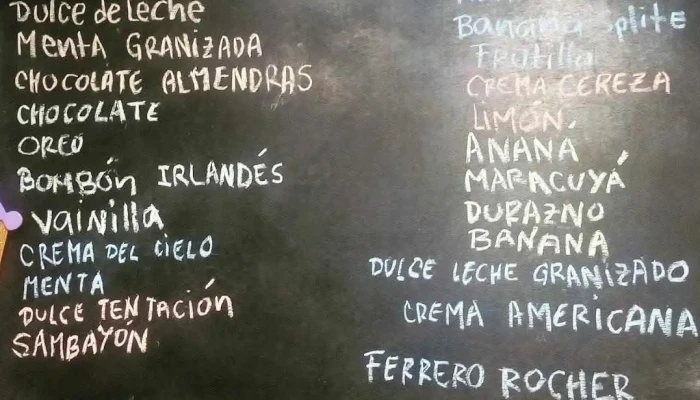 Dulce de Leche
Menta GRANIZADA
CHOCOLATE ALMENDRAS
CHOCOLATE
OREO
BOMBÓN IRLANDÉS
Vainilla
CREMA DEL CIELO
MENTA
DULCE TENTACIÓN
SAMBAYÓN
Banana Splite
Frutilla
CREMA CEREZA
LIMÓN
ANANÁ
MARACUYÁ
DURAZNO
BANANA
DULCE LECHE GRANIZADO
CREMA AMERICANA
FERRERO ROCHER